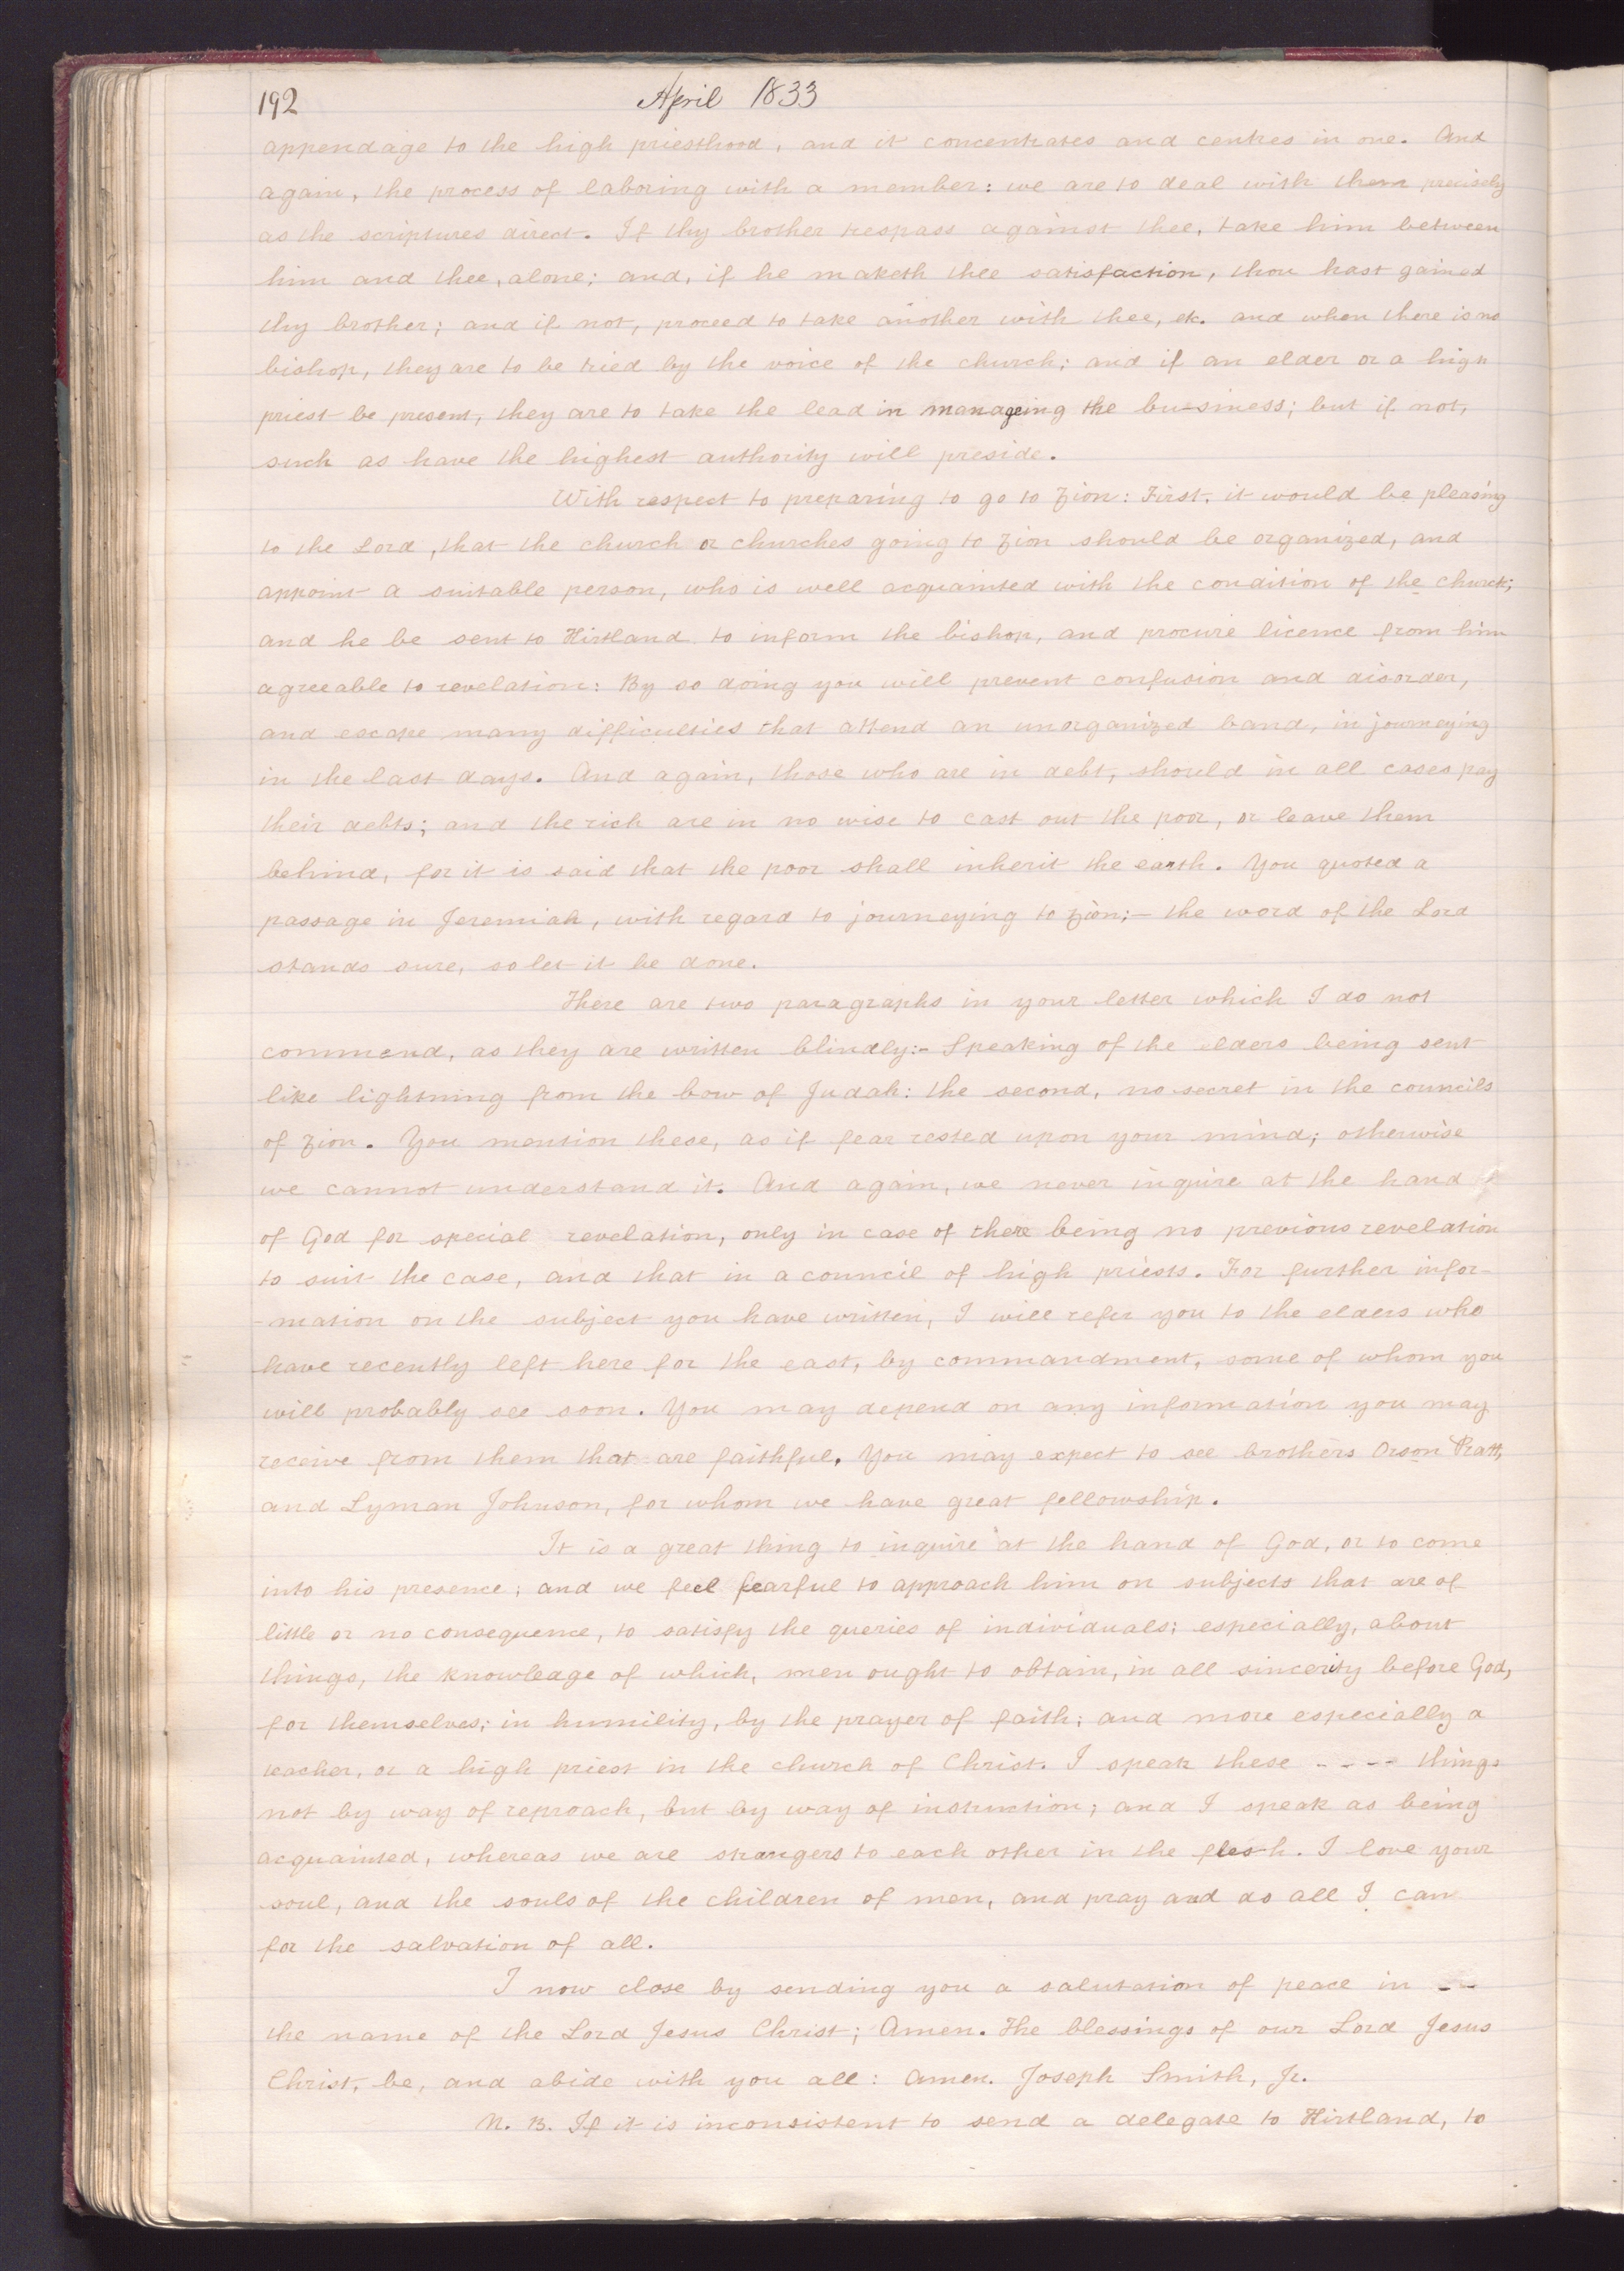 192
April 1833
appendage to the high priesthood, and it concentrates and centres in one. And
again, the process of laboring with a member: we are to deal with them precisely
as the scriptures direct. If thy brother trespass against thee, take him between
him and thee, alone; and, if he maketh thee satisfaction, thou hast gained
thy brother; and if not, proceed to take another with thee, etc. and when there is no
bishop, they are to be tried by the voice of the church; and if an elder or a high
priest be present, they are to take the lead in manageing the bu-siness; but if not,
such as have the highest authority will preside.
With respect to preparing to go to Zion: First, it would be pleasing
to the Lord, that the church or churches going to Zion should be organized, and
appoint a suitable person, who is well acquainted with the condition of the church;
and he be sent to Kirtland to inform the bishop, and procure licence from him
agreeable to revelation: By so doing you will prevent confusion and disorder,
and escape many difficulties that attend an unorganized band, in journeying
in the last days. And again, those who are in debt, should in all cases pay
their debts; and the rich are in no wise to cast out the poor, or leave them
behind, for it is said that the poor shall inherit the earth. You quoted a
passage in Jeremiah, with regard to journeying to Zion;- the word of the Lord
stands sure, so let it be done.
There are two paragraphs in your letter which I do not
commend, as they are written blindly:- Speaking of the elders being sent
like lightning from the bow of Judah: the second, no secret in the councils
of Zion. You mention these, as if fear rested upon your mind; otherwise
we cannot understand it. And again, we never inquire at the hand
of God for special revelation, only in case of there being no previous revelation
to suit the case, and that in a council of high priests. For further infor-
-mation on the subject you have written, I will refer you to the elders who
have recently left here for the east, by commandment, some of whom you
will probably see soon. You may depend on any information you may
receive from them that are faithful. You may expect to see brothers Orson Pratt,
and Lyman Johnson, for whom we have great fellowship.
It is a great thing to inquire at the hand of God, or to come
into his presence; and we feel fearful to approach him on subjects that are of
little or no consequence, to satisfy the queries of individuals; especially, about
things, the knowledge of which, men ought to obtain, in all sincerity before God,
for themselves; in humility, by the prayer of faith; and more especially a
teacher, or a high priest in the church of Christ. I speak these - - - - things
not by way of reproach, but by way of instruction; and I speak as being
acquainted, whereas we are strangers to each other in the flesh. I love your
soul, and the souls of the children of men, and pray and do all I can
for the salvation of all.
I now close by sending you a salutation of peace in - -
the name of the Lord Jesus Christ; Amen. The blessings of our Lord Jesus
Christ, be, and abide with you all: Amen. Joseph Smith, Jr.
N. B. If it is inconsistent to send a delegate to Kirtland, to